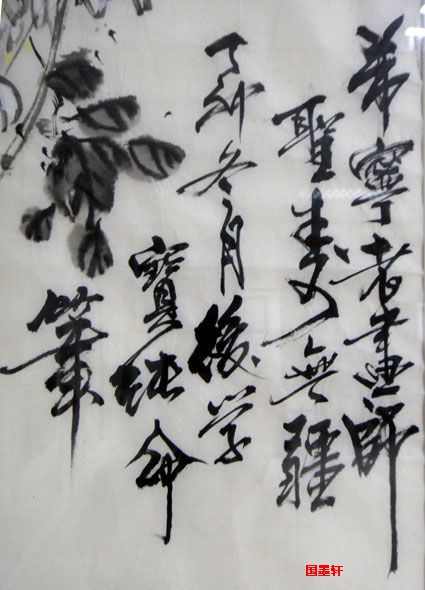 希寧老畫師
聖壽無疆
丁卯冬月後学
寶命
筆
国墨轩